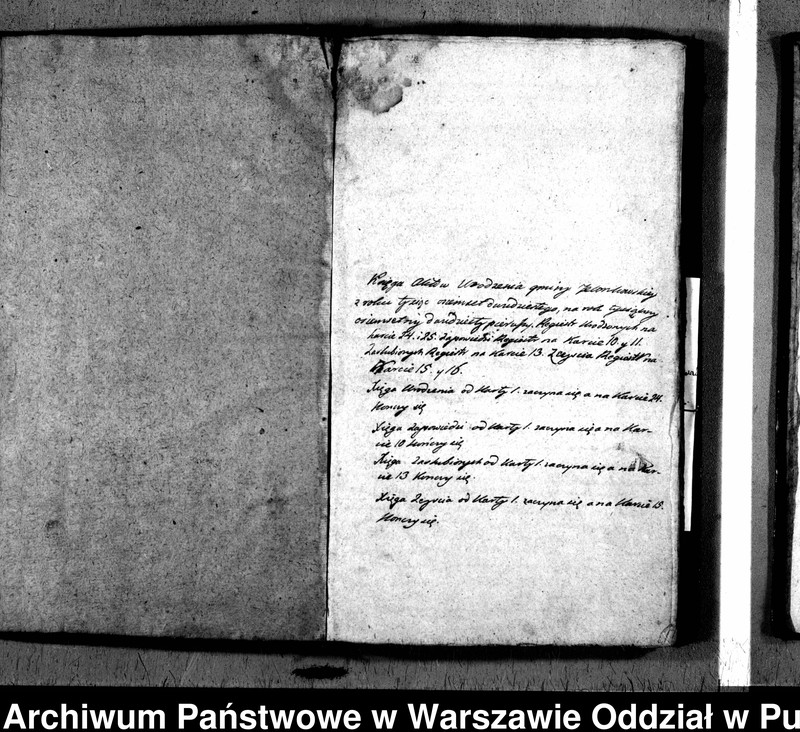 Księga Aktów Urodzenia gminy
z roku tysiąc osiemset dwudziestego, na rok tysiączny
osiemsetny dwudziesty pierwszy. Regiestr Urodzonych na
karcie 24. i 25. Zapowiedzi Regiestr na Karcie 10 y 11.
Zaślubionych Regiestr na Karcie 13. Zeyścia Regiestr na
Karcie 15. y 16.
Xsięga Urodzenia od Karty 1. zaczyna się a na Karcie 24.
Konczy się
Xsięga Zapowiedzi od Karty 1. zaczyna się a na Kar-
cie 10 Kończy się
Xsięga Zaślubionych od Karty 1. zaczyna się a na Kar-
cie 13 Konczy się.
Xsięga Zeyscia od Karty 1. zaczyna się a na Karcie 15.
Konczy się.
Archiwum Państwowe w Warszawie Oddział w Pu